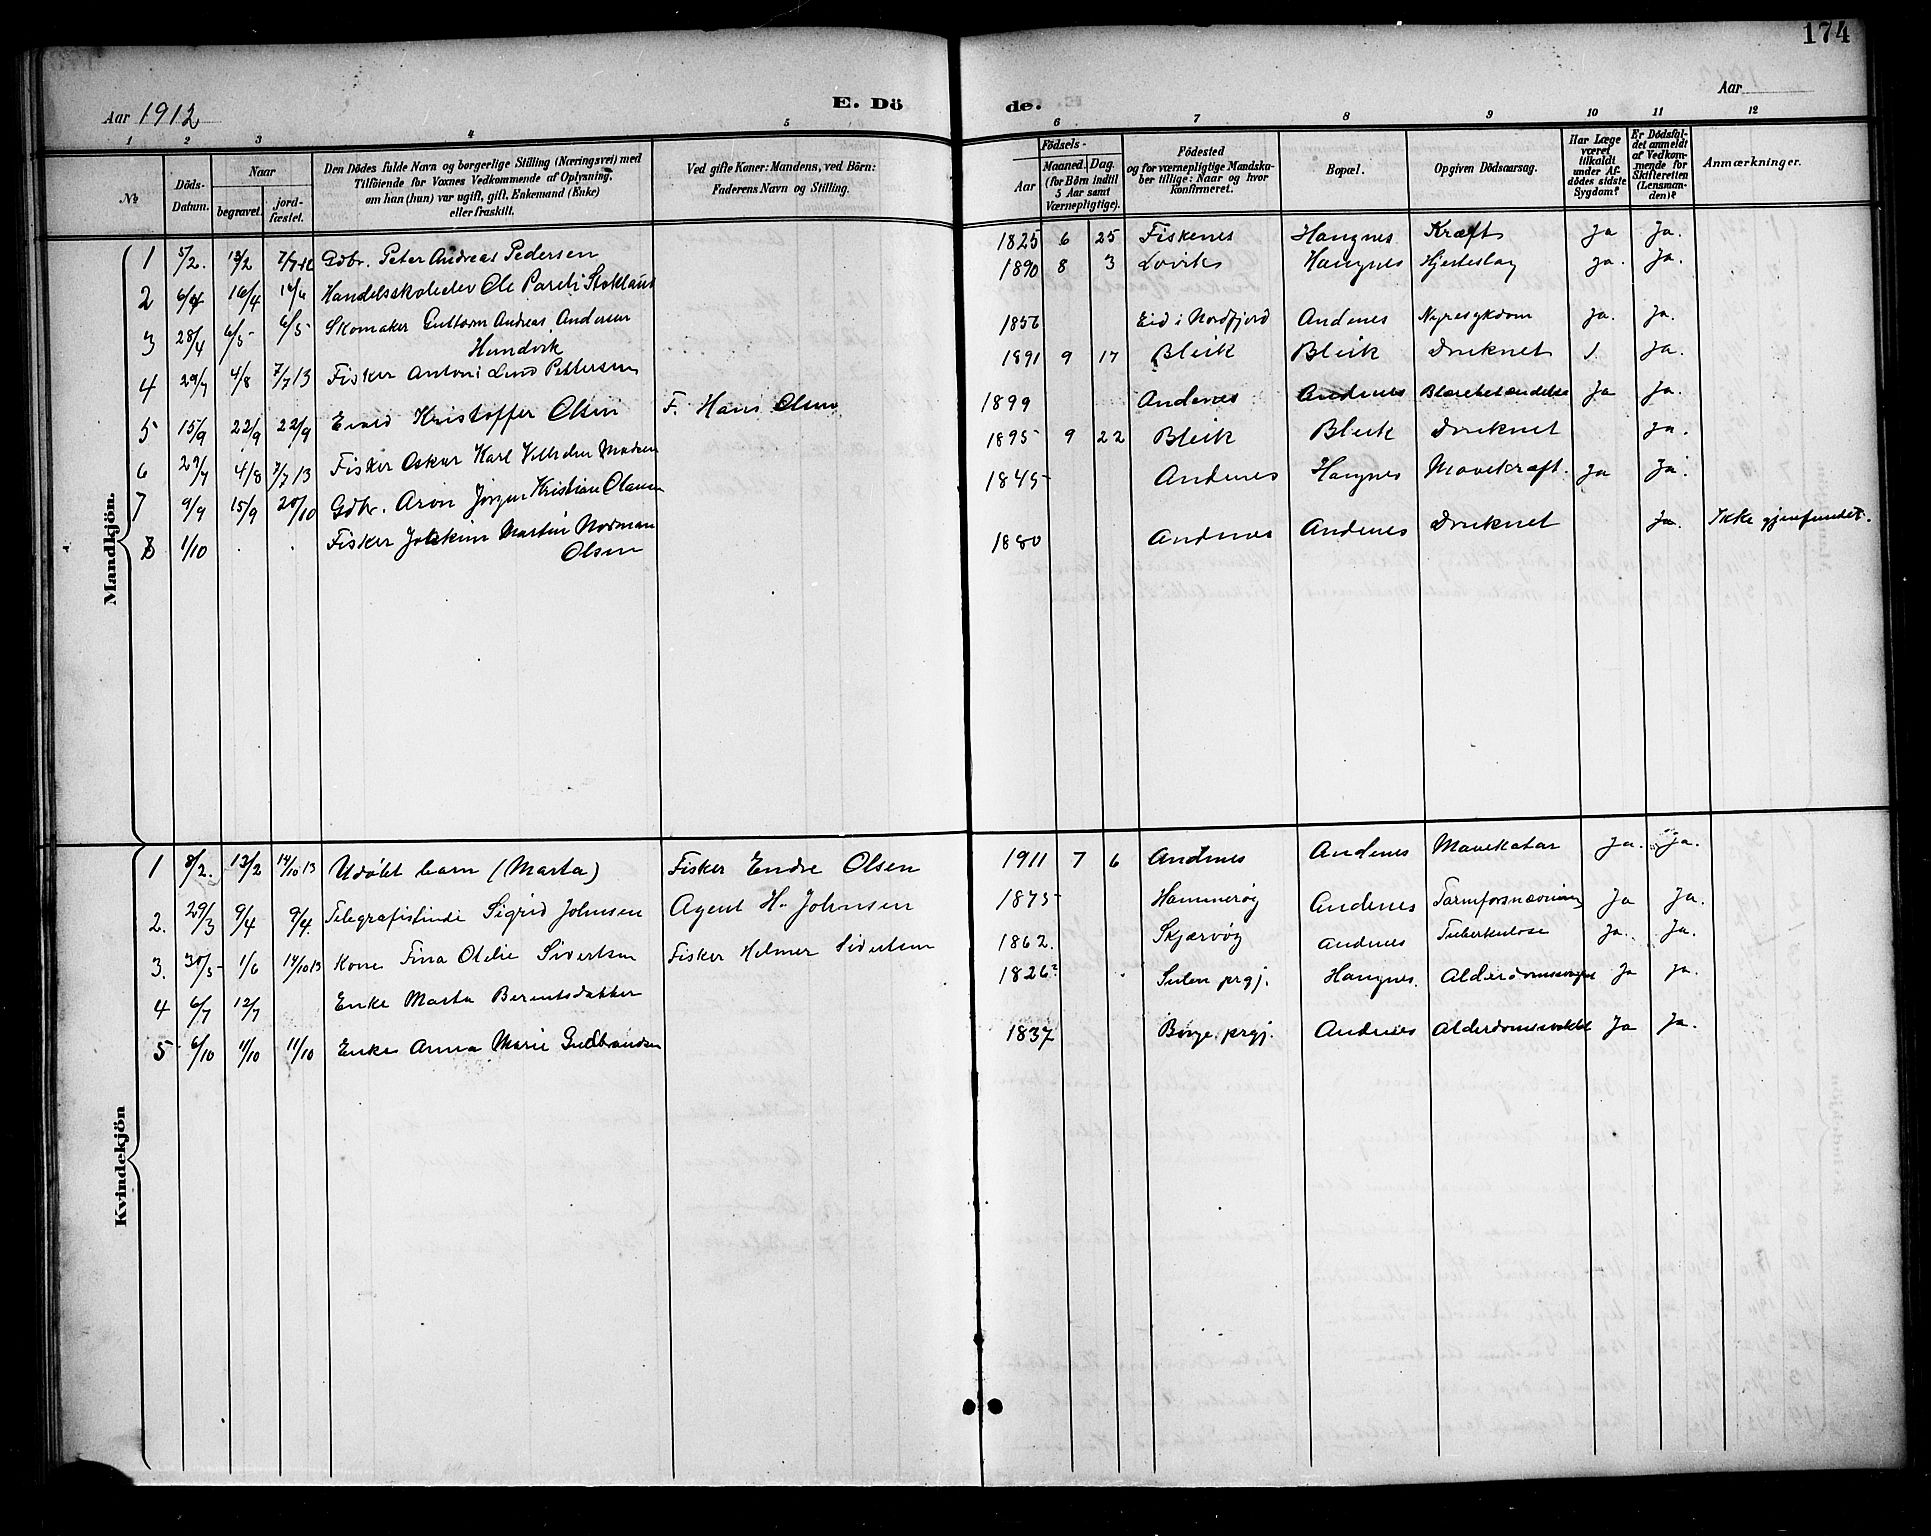 174
Aar 1912
E. Dö
de.
Aar
1 2 3 4 5 6 7 8 9 10 11 12
№
Döds-Datum.
Naar
begravet.
jord-fæstet.
Den Dödes fulde Navn og borgerlige Stilling (Næringsvei) med
Tilföiende for Voxnes Vedkommende af Oplysning,
om han (hun) var ugift, gift, Enkemand (Enke)
eller fraskilt.
Ved gifte Koner: Mandens, ved Börn:
Faderens Navn og Stilling.
Födsels-
Aar
Maaned. Dag.
(for Börn indtil
5 Aar samt
Værnepligtige).
Födested
og for værnepligtige Mandska-
ber tillige: Naar og hvor
Konfirmeret.
Bopæl.
Opgiven Dödsaarsag.
Har Læge
været
tilkaldt
under Af-
dödes sidste
Sygdom?
Er Dödsfal-
det anmeldt
af Vedkom-
mende for
Skifteretten
(Lensman-
den)?
Anmærkninger.
Mandkjön.
1 5/2. 13/2 7/7-12 Gdbr. Peter Andreas Pedersen 1825 6 25 Fiskenes Haugnes Kræft Ja Ja.
2 6/4 16/4 16/6 Handelsskoleelev Ole Pareli Stoklund 1890 8 3 Lovik Haugnes Hjerteslag Ja. Ja.
3 28/4 6/5 6/5 Skomaker Guttorm Andreas Andersen
Hundvik 1856 Eid i Nordfjord Andenes Nyresygdom Ja. Ja.
4 29/7 4/8 7/7 13 Fisker Antoni Lund Pettersen 1891 9 17 Bleik Bleik Druknet Ja.
5 15/9 22/9 22/9 Kristoffer Olsen F. Hans Olsen 1899 Andenes Andenes Blærebetændelse Ja Ja.
6 29/7 4/8 7/7 13 Fisker Oskar Karl Vilhelm Madsen 1895 9 22 Bleik Bleik Druknet Ja.
7 9/9 15/9 20/10 Gdbr. Aron Jørgen Kristian Olausen 1845 Andenes Haugnes Mavekræft. Ja Ja.
8 1/10 . . Fisker Joakim Martin Norman
Olsen 1880 Andenes Andenes Druknet Ja. Ikke gjenfundet.
Kvindekjön
1 8/2. 13/2 14/10 13 Udøbt barn (Marta) Fisker Endre Olsen 1911 7 6 Andenes Andenes Mavekatar Ja. Ja.
2. 29/3 9/4 9/4. Telegrafistinde Sigrid Johnsen Agent H. Johnsen 1875 Hammerøy Andenes Tarmforsnævring Ja Ja.
3. 30/5 1/6 14/10 13 Kone Fina Otelie Sivertsen Fisker Helmer Sivertsen 1862. Skjærvøy Andenes Tuberkulose Ja. Ja.
4 6/7 12/7 Enke Marta Berentsdatter 1826? Sulen prgj. Haugnes. Ja Ja.
5 6/10 11/10 11/10 Enke Anna Marie Gudbrandsen 1837 Borge prgj. Andenes Alderdomssvakhet Ja Ja.